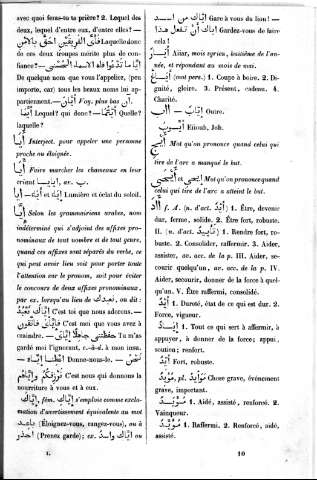 avec quoi feras-tu ta prière? 2. Lequel des
deux, lequel d'entre eux, d'entre elles? —
فَأَىُّ ٱلْفَرِيقَيْنِ أَحَقُّ بِٱلْأَمْنِ Laquelle donc
de ces deux troupes mérite plus de con-
fiance? — أَيًّا مَا تَدْعُوا فَلَهُ ٱلْأَسْمَاءُ ٱلْحُسْنَى
De quelque nom que vous l'appeliez, (peu
importe, car) tous les beaux noms lui ap-
partiennent. — أَيَّانَ Voy. plus bas أَن.
أَيُّمَا Lequel? qui donc? — أَيَّتُمَا Quelle?
laquelle?
أَيَا Interject. pour appeler une personne
proche ou éloignée.
Faire marcher les chameaux en leur
criant ايا, av. ب.
Lumière et éclat du soleil.
إِيَّا Selon les grammairiens arabes, nom
indéterminé qui s'adjoint des affixes pro-
nominaux de tout nombre et de tout genre,
quand ces affixes sont séparés du verbe, ce
qui peut avoir lieu soit pour porter toute
l'attention sur le pronom, soit pour éviter
le concours de deux affixes pronominaux,
par ex. lorsqu'au lieu de نعبدك, on dit:
إِيَّاكَ نَعْبُدُ C'est toi que nous adorons. —
فَإِيَّاىَ فَٱتَّقُونِ C'est moi que vous avez à
craindre. — Tu m'as
gardé moi l'ignorant, c.-à-d. à mon insu.
— Donne-nous-le. — نَحْنُ
نَرْزُقُكُمْ وَإِيَّاهُمْ C'est nous qui donnons la
nourriture à vous et à eux.
إِيَّاكَ, fém. إِيَّاكِ s'emploie comme excla-
mation d'avertissement équivalente au mot
باعد (Éloignez-vous, rangez-vous), ou à
احذر (Prenez garde); ex. إِيَّاكَ والاسد ou
إِيَّاكَ من الاسد Gare à vous du lion! —
إِيَّاكَ أَنْ تَفْعَلَ هذا Gardez-vous de faire
cela!
أَيَّار Aïiar, mois syrien, huitième de l'an-
née, et répondant au mois de mai.
أَيَاغ (mot pers.) 1. Coupe à boire. 2. Di-
gnité, gloire. 3. Présent, cadeau. 4.
Charité.
Outre.
أَيُّوب Eïioub, Job.
Mot qu'on prononce quand celui qui
tire de l'arc a manqué le but.
Mot qu'on prononce quand
celui qui tire de l'arc a atteint le but.
f. A. (n. d'act. أَيْد) 1. Être, devenir
dur, ferme, solide. 2. Être fort, robuste.
II. (n. d'act. تَأْيِيد) 1. Rendre fort, ro-
buste. 2. Consolider, raffermir. 3. Aider,
assister, av. acc. de la p. III. Aider, se-
courir quelqu'un, av. acc. de la p. IV.
Aider, secourir, donner de la force à quel-
qu'un. V. Être raffermi, consolidé.
أَيْد 1. Dureté, état de ce qui est dur. 2.
Force, vigueur.
إِيَاد 1. Tout ce qui sert à affermir, à
appuyer, à donner de la force; appui,
soutien; renfort.
أَيِّد Fort, robuste.
مُؤْيِد, pl. مَوَائِد Chose grave, événement
grave, important.
مُؤَيَّد 1. Aidé, assisté, renforcé. 2.
Vainqueur.
1. Raffermi. 2. Renforcé, aidé,
assisté.
I. 10